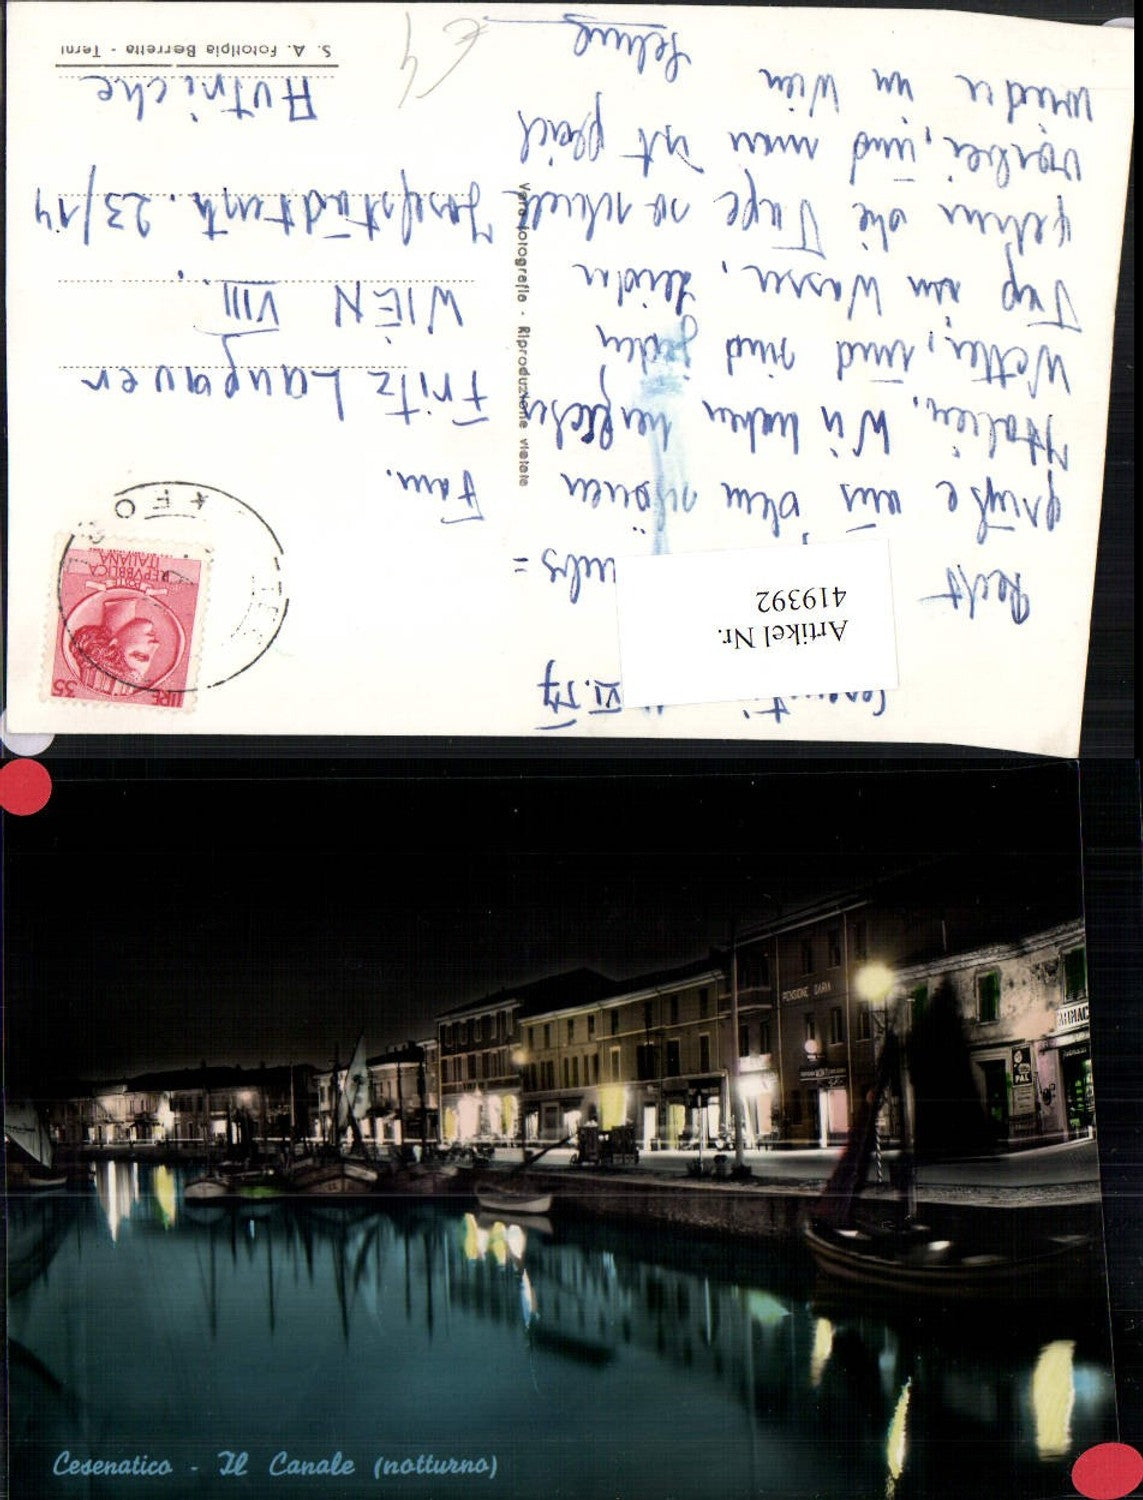 VI. 57
Artikel Nr.
419392
Recht
grüße aus dem schönen
Italien. Wir haben herrliches
Wetter, und sind jeden
Tag im Wasser, Leider
gehen die Tage so schnell
vorbei, und man ist gleich
wieder in Wien
€ 4
LIRE 35
POSTE
REPVBBLICA
ITALIANA
Fam.
Fritz Laungauer
WIEN VIII.,
Josefstädterstr. 23/14
Autriche
Vera fotografia - Riproduzione vietata
S. A. Fototipia Berretta - Terni
PENSIONE DARIA
FARMAC
PAL
Cesenatico - Il Canale (notturno)